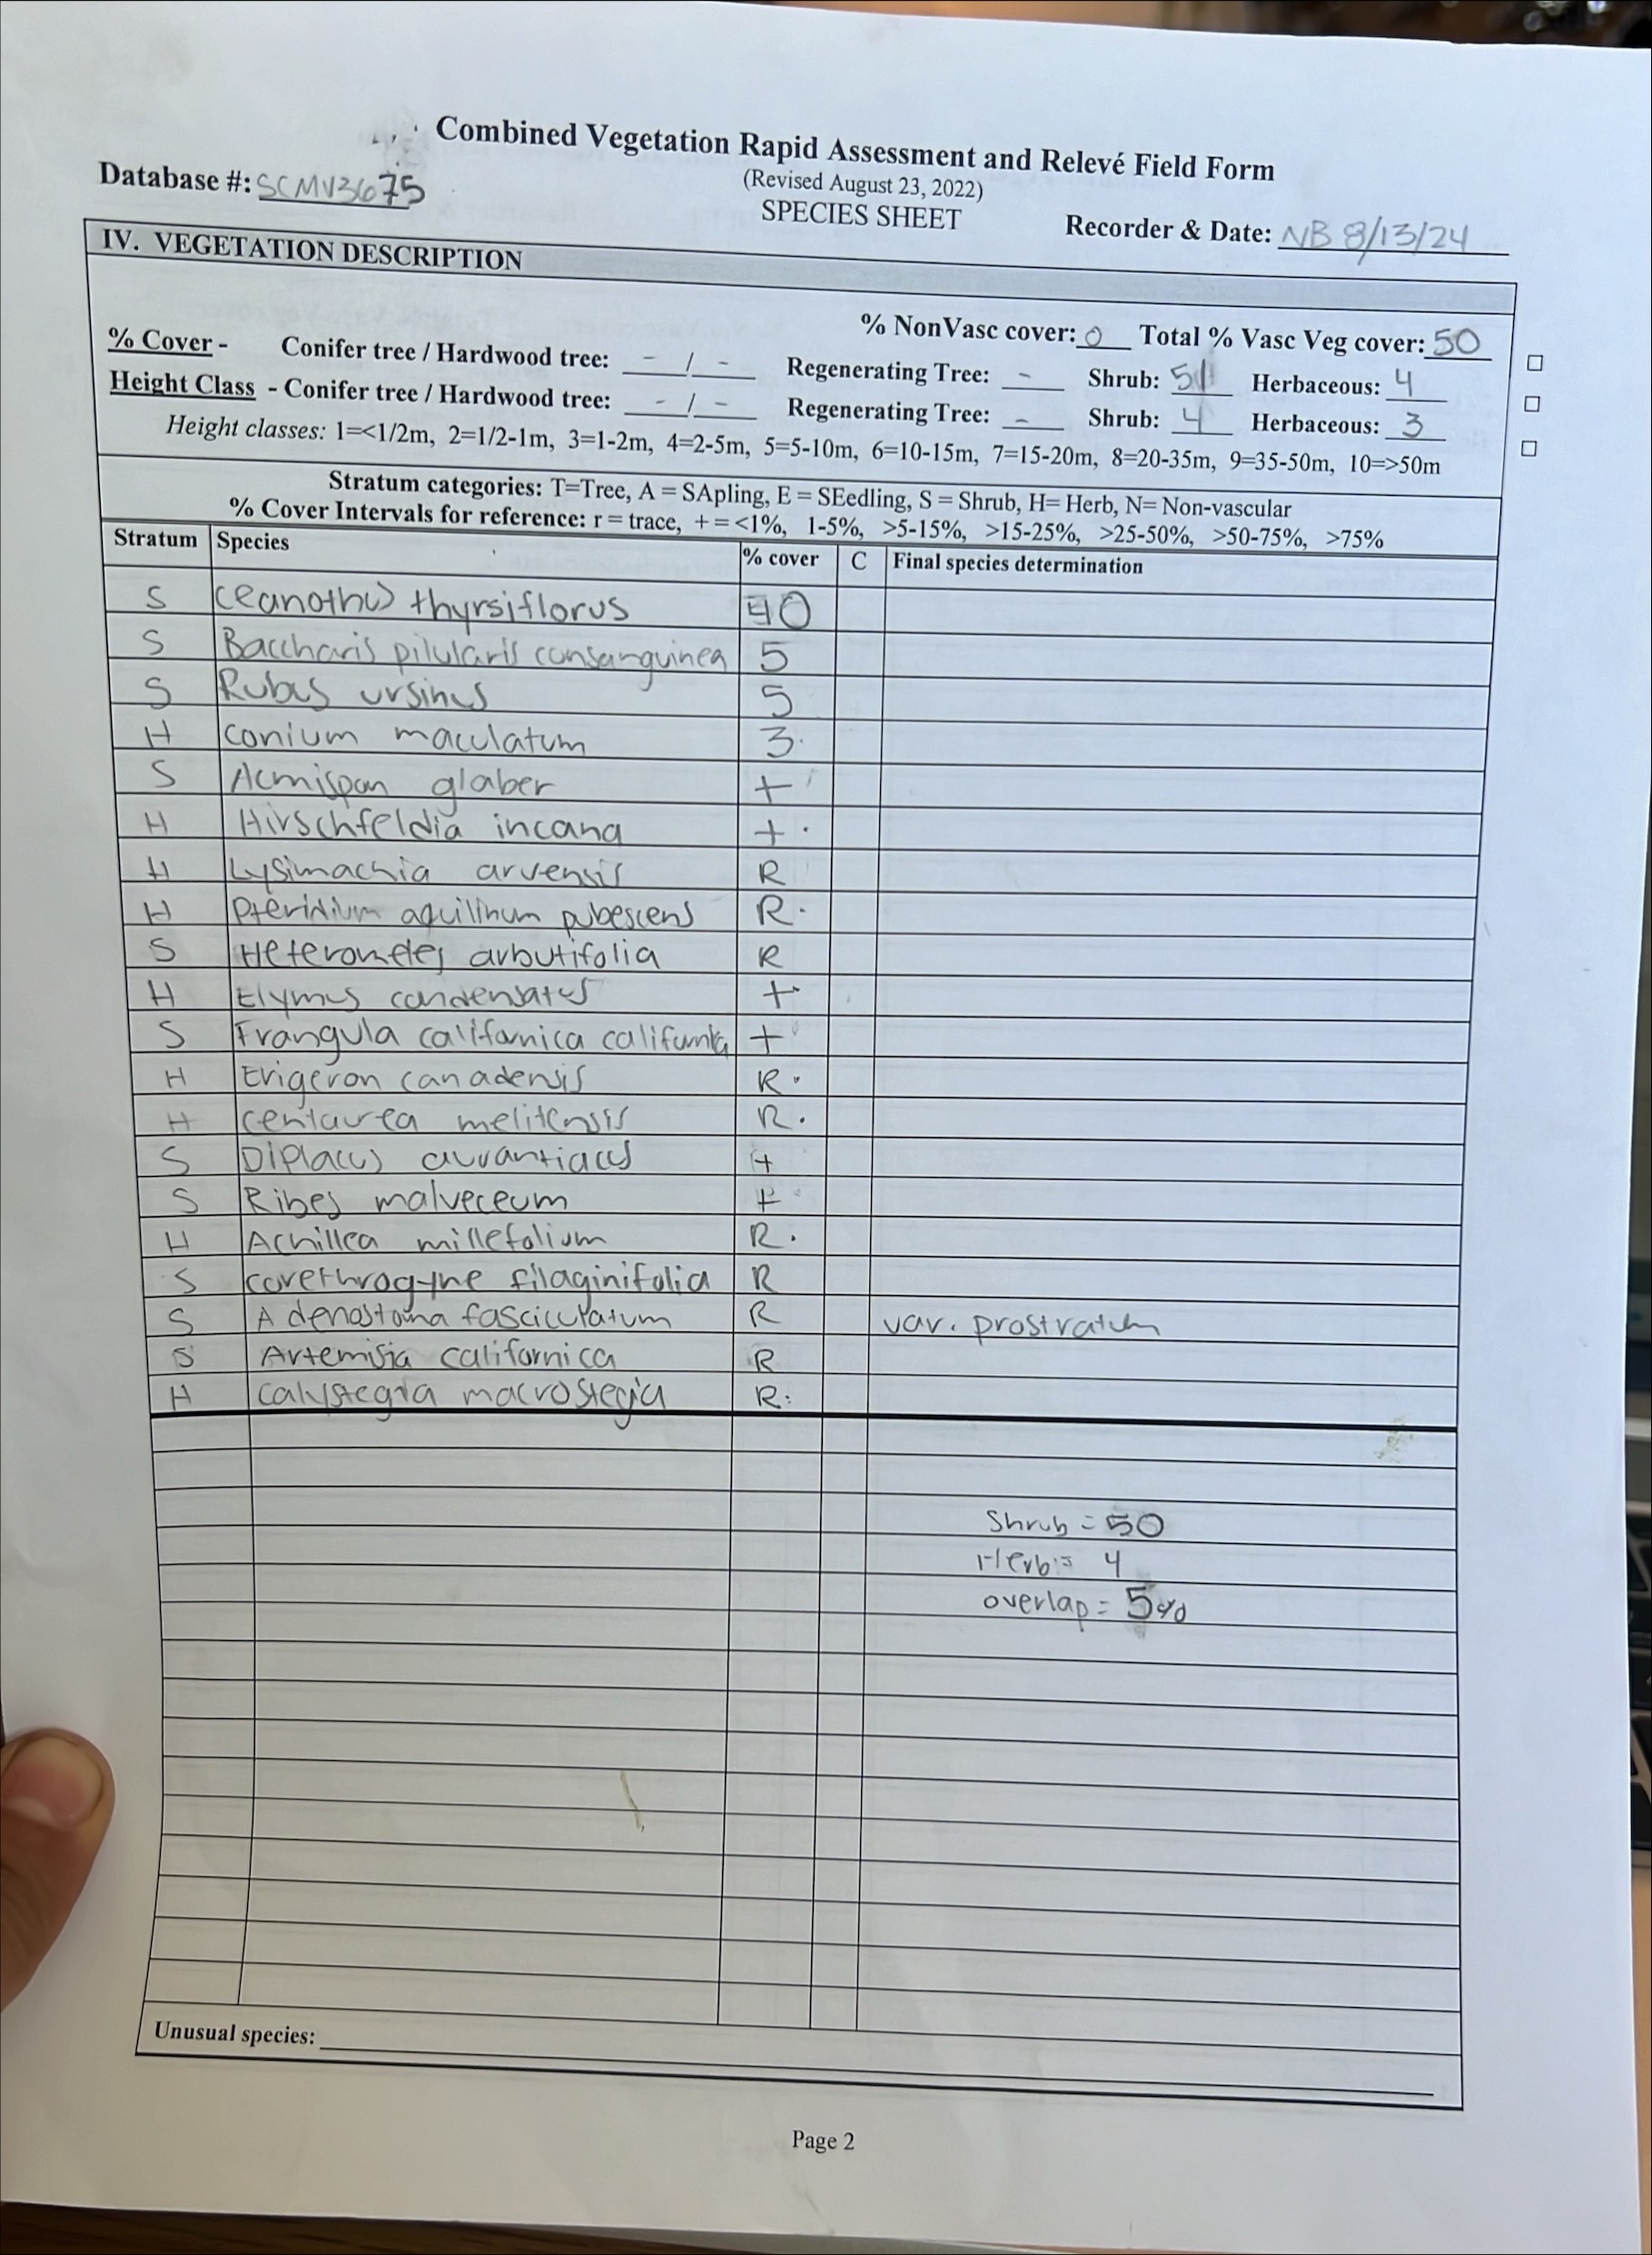 Combined Vegetation Rapid Assessment and Relevé Field Form
(Revised August 23, 2022)
Database #: SCMV3675
SPECIES SHEET
Recorder & Date: NB 8/13/24
IV. VEGETATION DESCRIPTION
% NonVasc cover: 0 Total % Vasc Veg cover: 50
% Cover - Conifer tree / Hardwood tree: - / - Regenerating Tree: - Shrub: 51 Herbaceous: 4
Height Class - Conifer tree / Hardwood tree: - / - Regenerating Tree: - Shrub: 4 Herbaceous: 3
Height classes: 1=<1/2m, 2=1/2-1m, 3=1-2m, 4=2-5m, 5=5-10m, 6=10-15m, 7=15-20m, 8=20-35m, 9=35-50m, 10=>50m
Stratum categories: T=Tree, A = SApling, E = SEedling, S = Shrub, H= Herb, N= Non-vascular
% Cover Intervals for reference: r = trace, + = <1%, 1-5%, >5-15%, >15-25%, >25-50%, >50-75%, >75%
Stratum Species % cover C Final species determination
S Ceanothus thyrsiflorus 40
S Baccharis pilularis consanguinea 5
S Rubus ursinus 5
H Conium maculatum 3
S Acmispon glaber +
H Hirschfeldia incana +
H Lysimachia arvensis R
H Pteridium aquilinum pubescens R
S Heteromeles arbutifolia R
H Elymus condensatus +
S Frangula californica californica +
H Erigeron canadensis R
H Centaurea melitensis R
S Diplacus aurantiacus +
S Ribes malveceum +
H Achillea millefolium R
S Corethrogyne filaginifolia R
S Adenostoma fasciculatum R var. prostratum
S Artemisia californica R
H Calystegia macrostegia R
Shrub = 50
Herb = 4
overlap = 5%
Unusual species:
Page 2